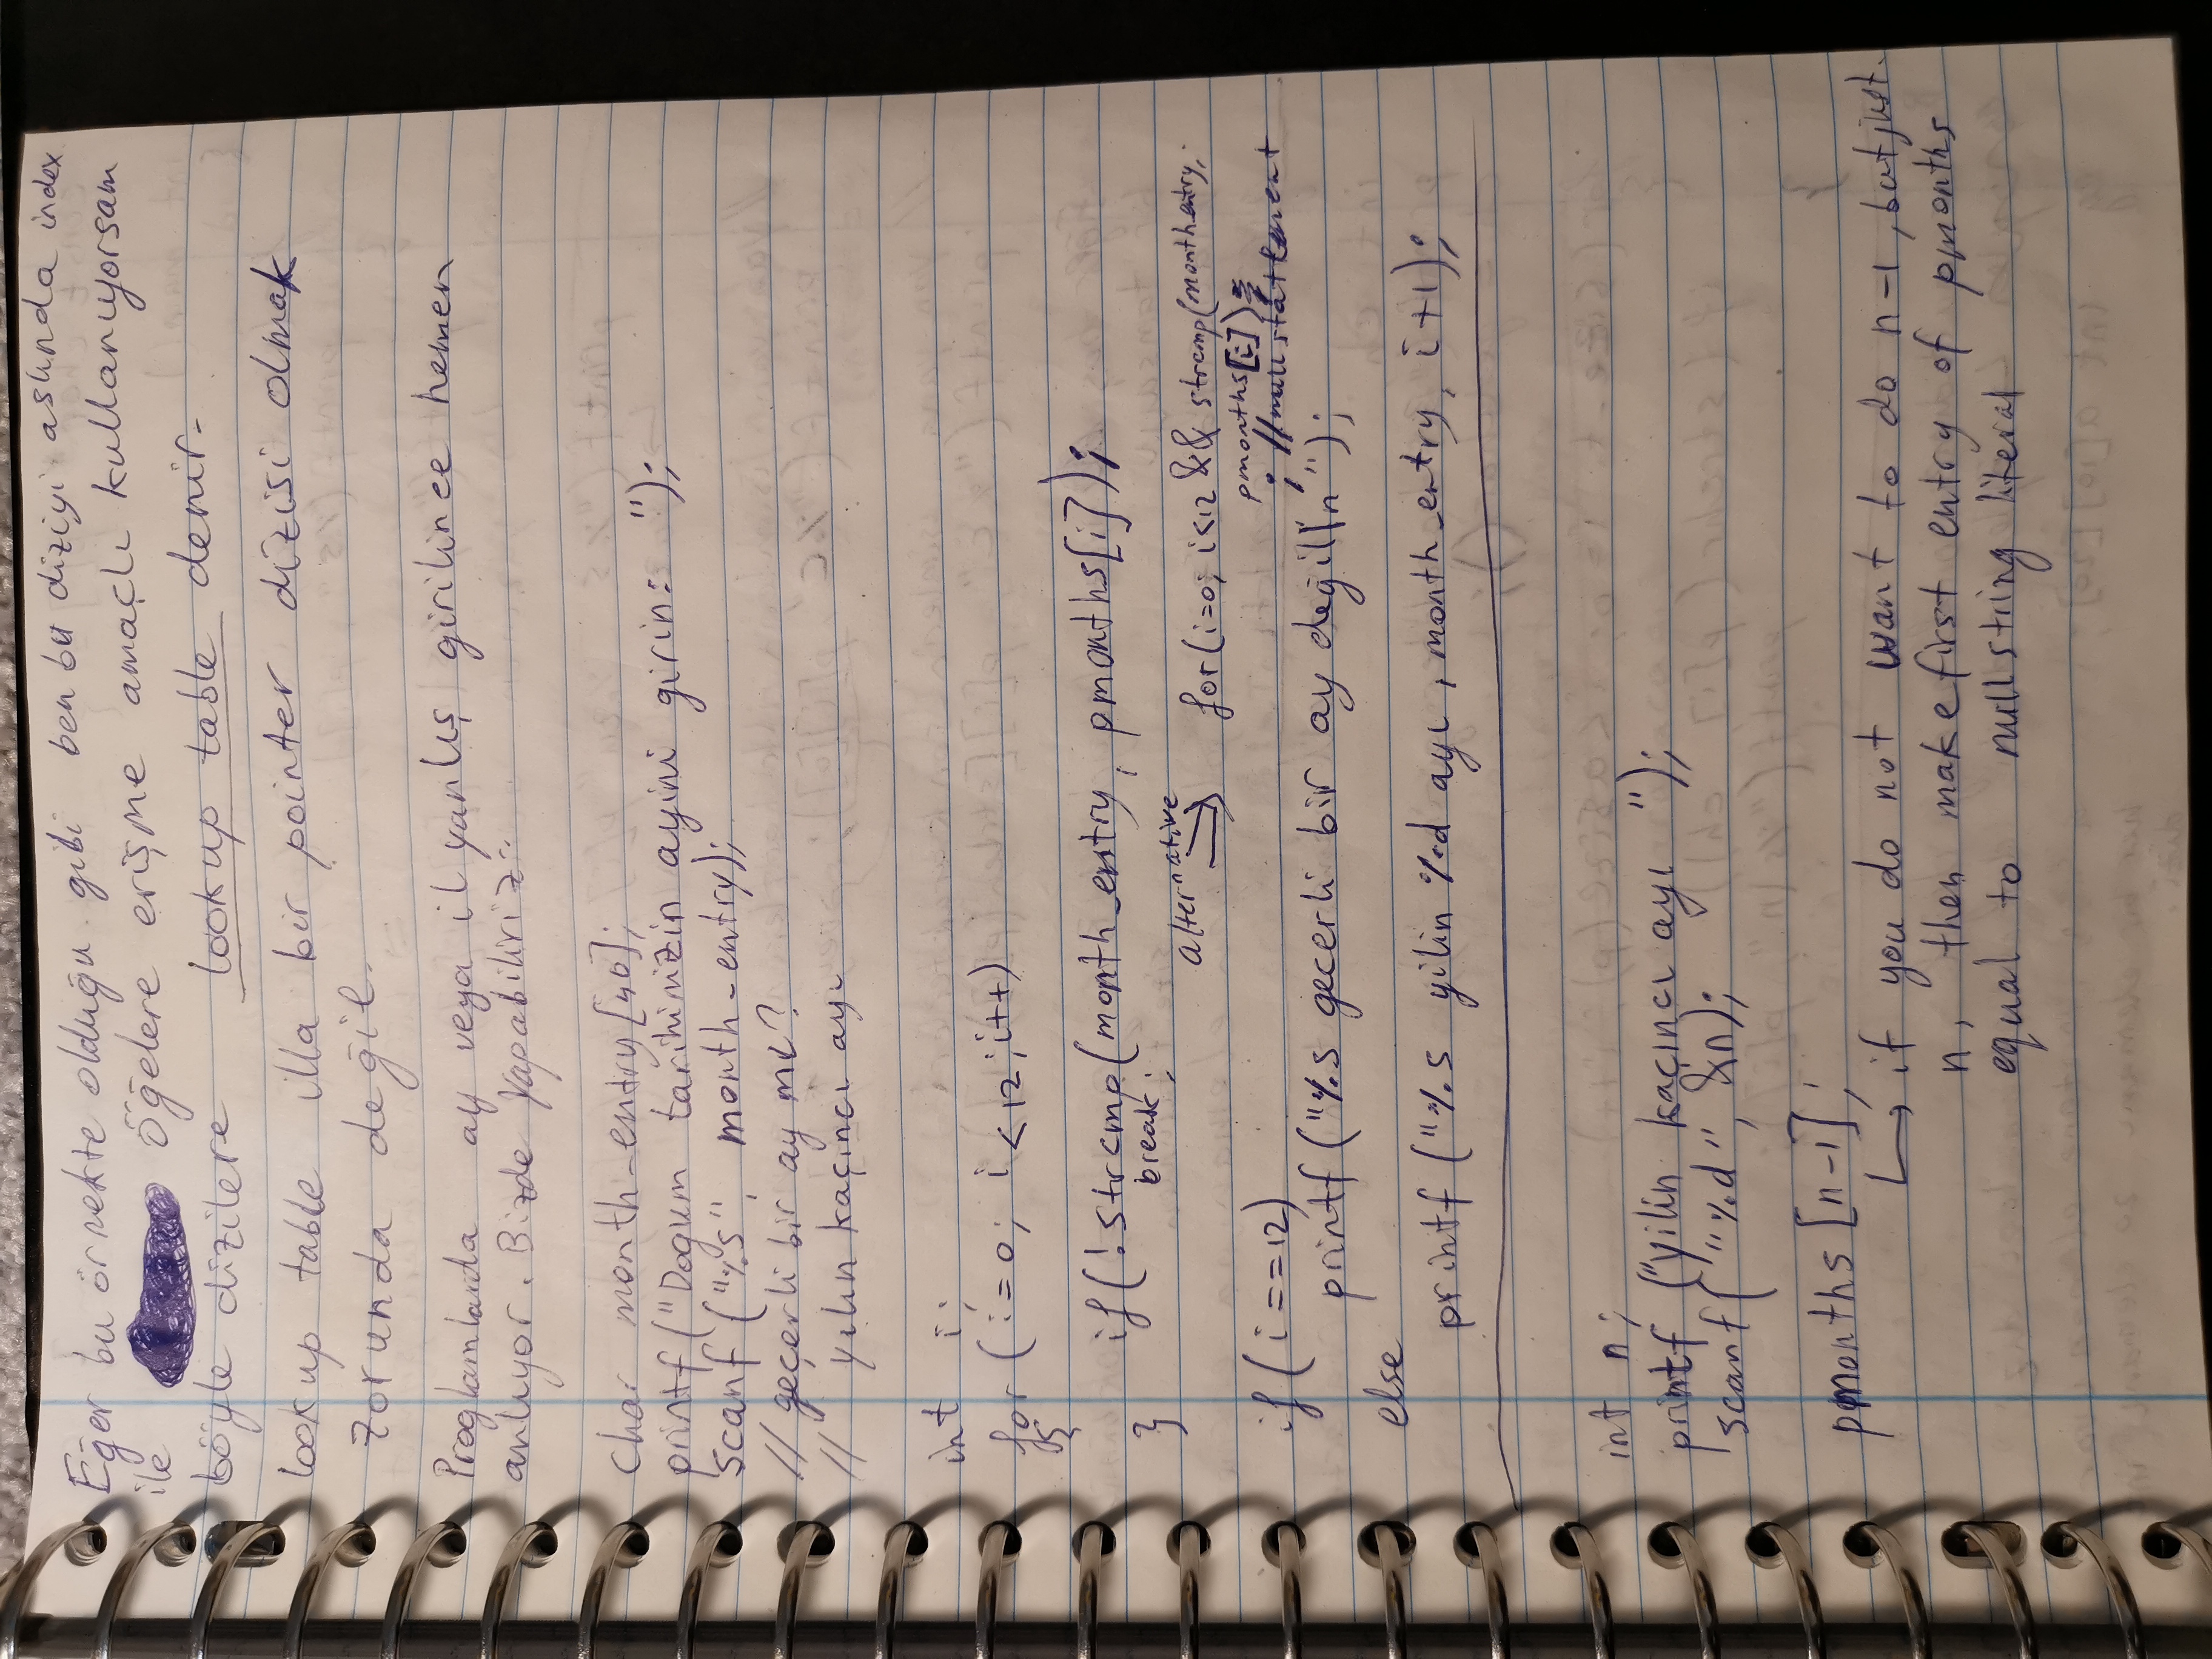 Eğer bu örnekte olduğu gibi ben bu diziyi aslında index
ile öğelere erişme amaçlı kullanıyorsam
böyle dizilere lookup table denir.
lookup table illa bir pointer dizisi olmak
zorunda değil.
Proglamlarda ay veya il yanlış girilince hemen
anlıyor. Bizde yapabiliriz:
char month_entry[40];
printf("Dogum tarihinizin ayini girin: ");
scanf("%s", month_entry);
// geçerli bir ay mı?
// yılın kaçıncı ayı
int i;
for (i=0; i<12; i++)
{
if(!strcmp(month_entry, pmonths[i]);
break;
}
alternative → for(i=0; i<12 && strcmp(month entry,
pmonths[i]);
; // null statement
if (i==12)
printf("%s gecerli bir ay değil\n");
else
printf("%s yilin %d ayı, month_entry, i+1);
int n;
printf("yilin kaçıncı ayı ");
scanf("%d", &n);
pmonths[n-1];
↳ if you do not want to do n-1, but just
n, then make first entry of pmonths
equal to null string literal